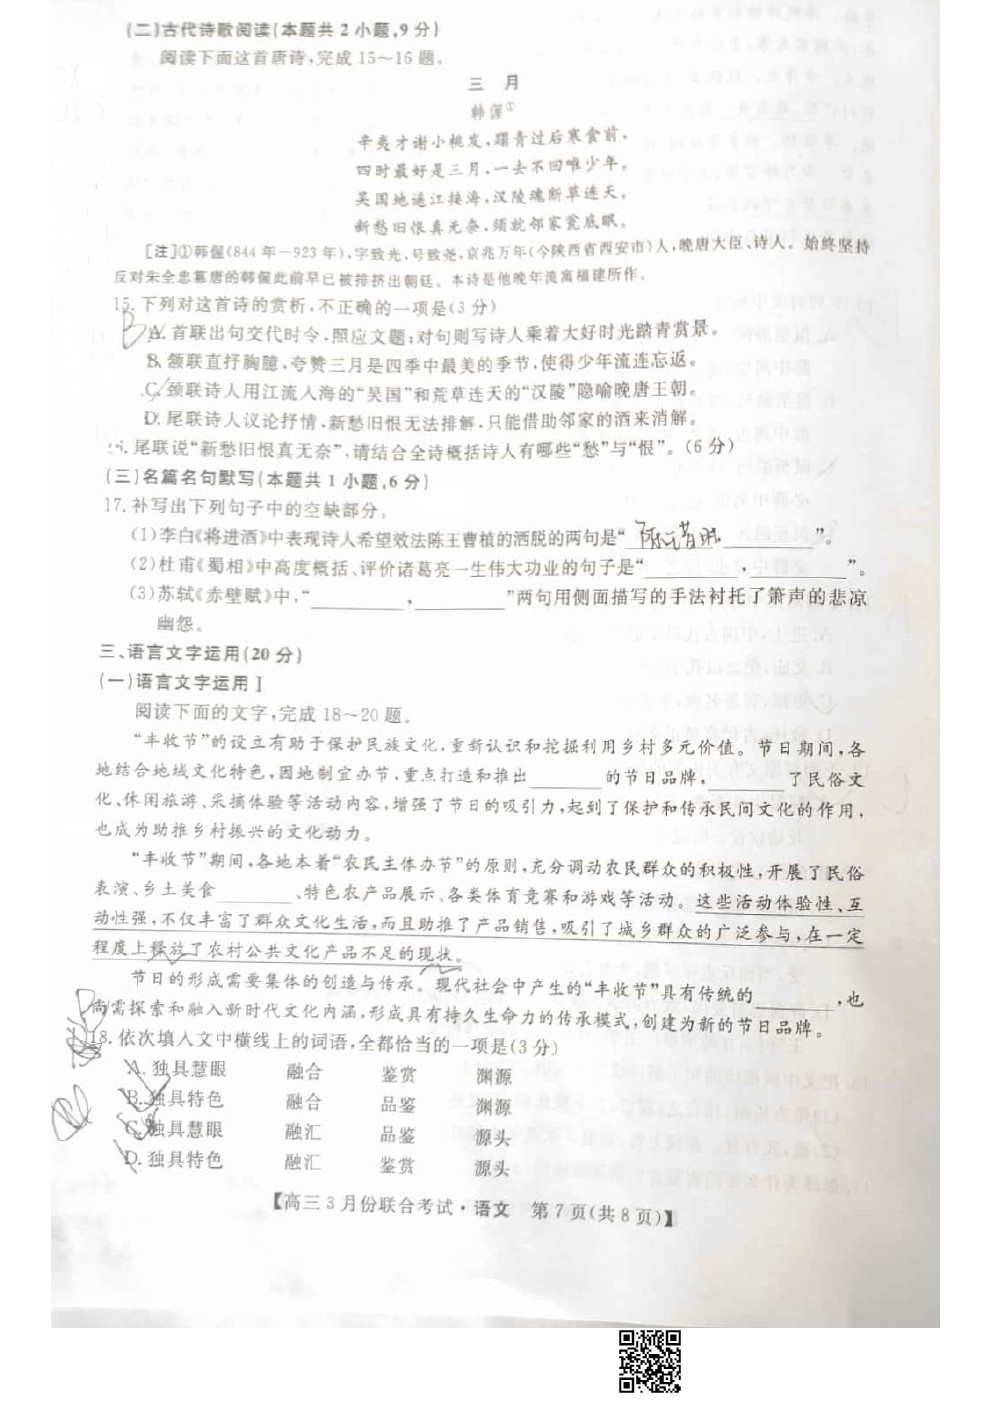 (二)古代诗歌阅读(本题共 2 小题,9 分)
阅读下面这首唐诗,完成 15～16 题。
三 月
韩偓①
辛夷才谢小桃发,蹋青过后寒食前。
四时最好是三月,一去不回唯少年。
吴国地遥江接海,汉陵魂断草连天。
新愁旧恨真无奈,须就邻家瓮底眠。
[注]①韩偓(844 年－923 年),字致光,号致尧,京兆万年(今陕西省西安市)人,晚唐大臣、诗人。始终坚持
反对朱全忠篡唐的韩偓此前早已被排挤出朝廷。本诗是他晚年流寓福建所作。
15. 下列对这首诗的赏析,不正确的一项是(3 分)
B
A. 首联出句交代时令,照应文题;对句则写诗人乘着大好时光踏青赏景。
B. 颔联直抒胸臆,夸赞三月是四季中最美的季节,使得少年流连忘返。
C. 颈联诗人用江流入海的“吴国”和荒草连天的“汉陵”隐喻晚唐王朝。
D. 尾联诗人议论抒情,新愁旧恨无法排解,只能借助邻家的酒来消解。
16. 尾联说“新愁旧恨真无奈”,请结合全诗概括诗人有哪些“愁”与“恨”。(6 分)
(三)名篇名句默写(本题共 1 小题,6 分)
17. 补写出下列句子中的空缺部分。
(1)李白《将进酒》中表现诗人希望效法陈王曹植的洒脱的两句是“ 陈王昔时, ”。
(2)杜甫《蜀相》中高度概括、评价诸葛亮一生伟大功业的句子是“ , ”。
(3)苏轼《赤壁赋》中,“ , ”两句用侧面描写的手法衬托了箫声的悲凉
幽怨。
三、语言文字运用(20 分)
(一)语言文字运用 I
阅读下面的文字,完成 18～20 题。
“丰收节”的设立有助于保护民族文化,重新认识和挖掘利用乡村多元价值。节日期间,各
地结合地域文化特色,因地制宜办节,重点打造和推出 的节日品牌, 了民俗文
化、休闲旅游、采摘体验等活动内容,增强了节日的吸引力,起到了保护和传承民间文化的作用,
也成为助推乡村振兴的文化动力。
“丰收节”期间,各地本着“农民主体办节”的原则,充分调动农民群众的积极性,开展了民俗
表演、乡土美食 、特色农产品展示、各类体育竞赛和游戏等活动。这些活动体验性、互
动性强,不仅丰富了群众文化生活,而且助推了产品销售,吸引了城乡群众的广泛参与,在一定
程度上释放了农村公共文化产品不足的现状。
节日的形成需要集体的创造与传承。现代社会中产生的“丰收节”具有传统的 ,也
尚需探索和融入新时代文化内涵,形成具有持久生命力的传承模式,创建为新的节日品牌。
18. 依次填入文中横线上的词语,全都恰当的一项是(3 分)
A. 独具慧眼 融合 鉴赏 渊源
B. 独具特色 融合 品鉴 渊源
C. 独具慧眼 融汇 品鉴 源头
D. 独具特色 融汇 鉴赏 源头
【高三 3 月份联合考试·语文 第 7 页(共 8 页)】